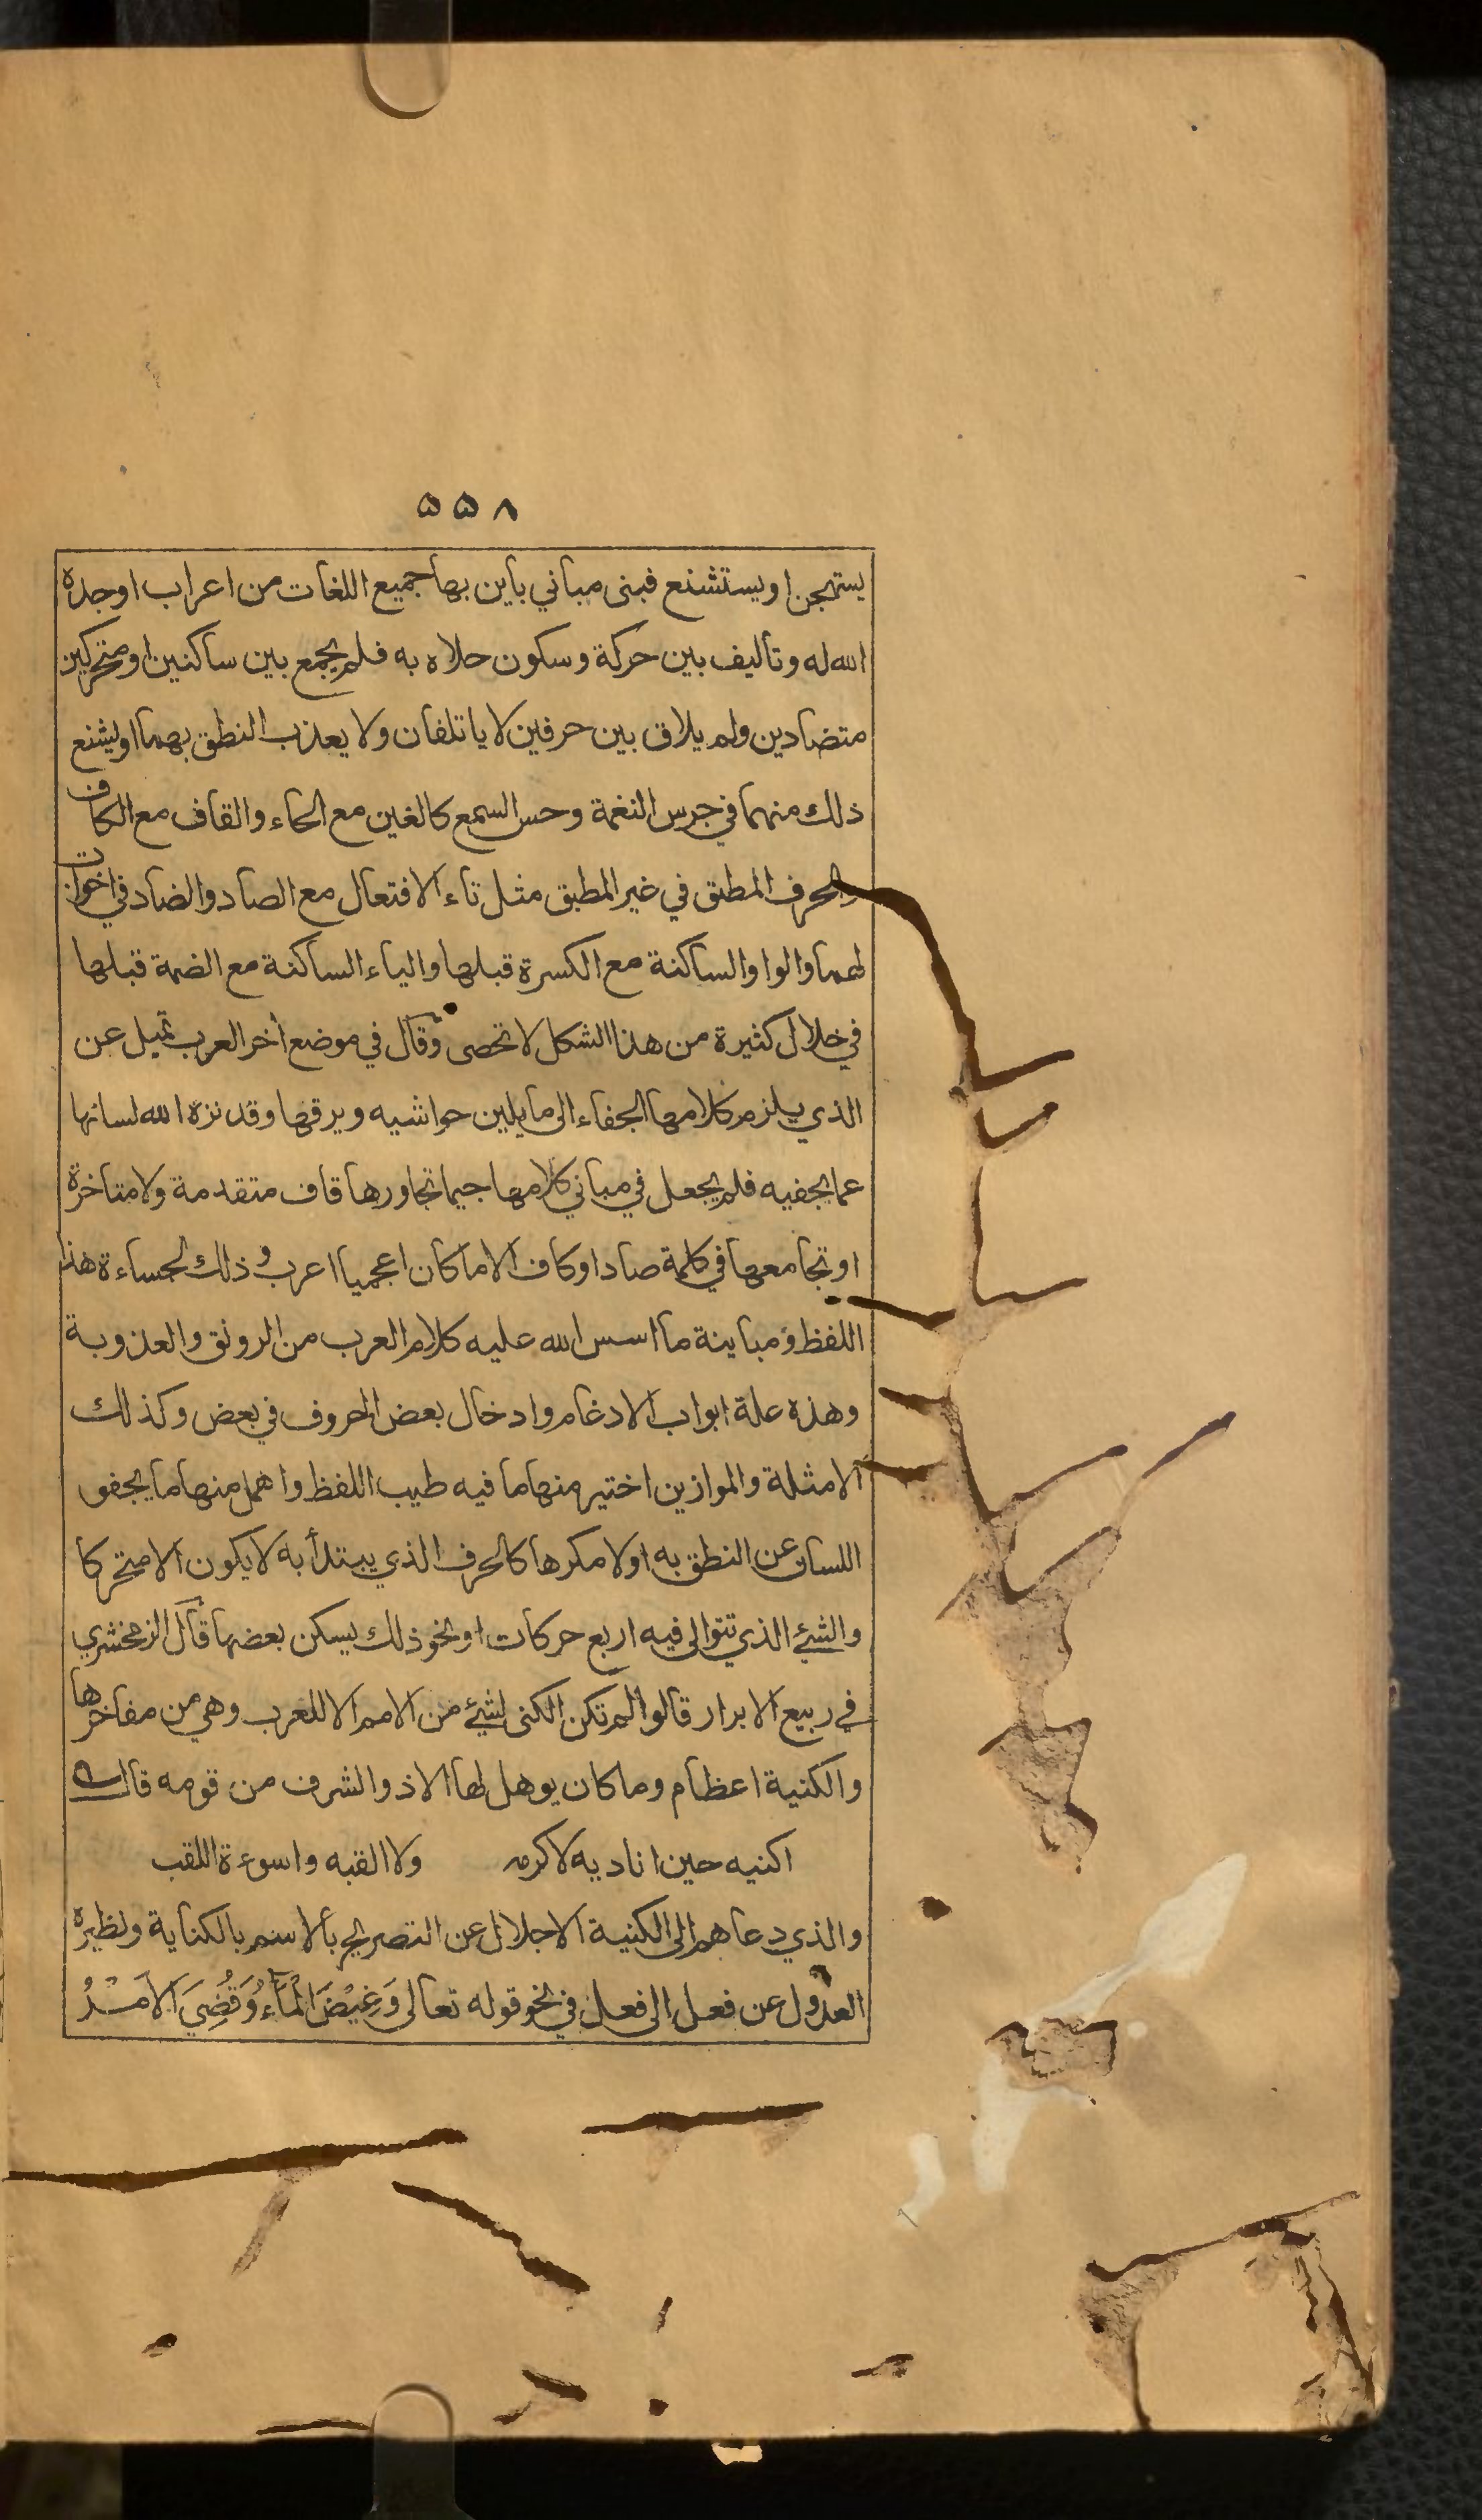 ٥٥٨
يستهجن او يستشنع فبنى مباني باين بها جميع اللغات من اعراب اوجده
الله له وتاليف بين حركة وسكون حلاه به فلم يجمع بين ساكنين او متحركين
متضادين ولم يلاق بين حرفين لا ياتلفان ولا يعذب النطق بهما او يشنع
ذلك منهما في جرس النغمة وحس السمع كالغين مع الحاء والقاف مع الكاف
والحرف المطبق في غير المطبق مثل تاء الافتعال مع الصاد والضاد في اخوات
لهما والواو الساكنة مع الكسرة قبلها والياء الساكنة مع الضمة قبلها
في خلال كثيرة من هذا الشكل لا تحصى وقال في موضع أخر العرب تميل عن
الذي يلزم كلامها الجفاء الى ما يلين حواشيه ويرقها وقد نزه الله لسانها
عما يجفيه فلم يجعل في مباني كلامها جيما تجاورها قاف متقدمة ولا متاخرة
او تجامعها في كلمة صاد او كاف الا ما كان اعجميا اعرب وذلك لجساءة هذا
اللفظ ومباينة ما اسس الله عليه كلام العرب من الرونق والعذوبة
وهذه علة ابواب الادغام وادخال بعض الحروف في بعض وكذلك
الامثلة والموازين اختير منها ما فيه طيب اللفظ واهمل منها ما يجفو
اللسان عن النطق به اولا مكرها كالحرف الذي يبتدأ به لا يكون الا متحركا
والشئ الذي تتوالى فيه اربع حركات او نحو ذلك يسكن بعضها قال الزمخشري
في ربيع الابرار قالوا لم تكن الكنى لشئ من الامم الا للعرب وهي من مفاخرها
والكنية اعظام وما كان يوهل لها الا ذو الشرف من قومه قال
اكنيه حين اناديه لاكرمه ولا القبه واسوءة اللقب
والذي دعاهم الى الكنية الاجلال عن التصريح بالاسم بالكناية ونظيره
العدول عن فعل الى فعل في نحو قوله تعالى وَغِيْضَ الْمَآءُ وَقُضِيَ الْاَمْرُ